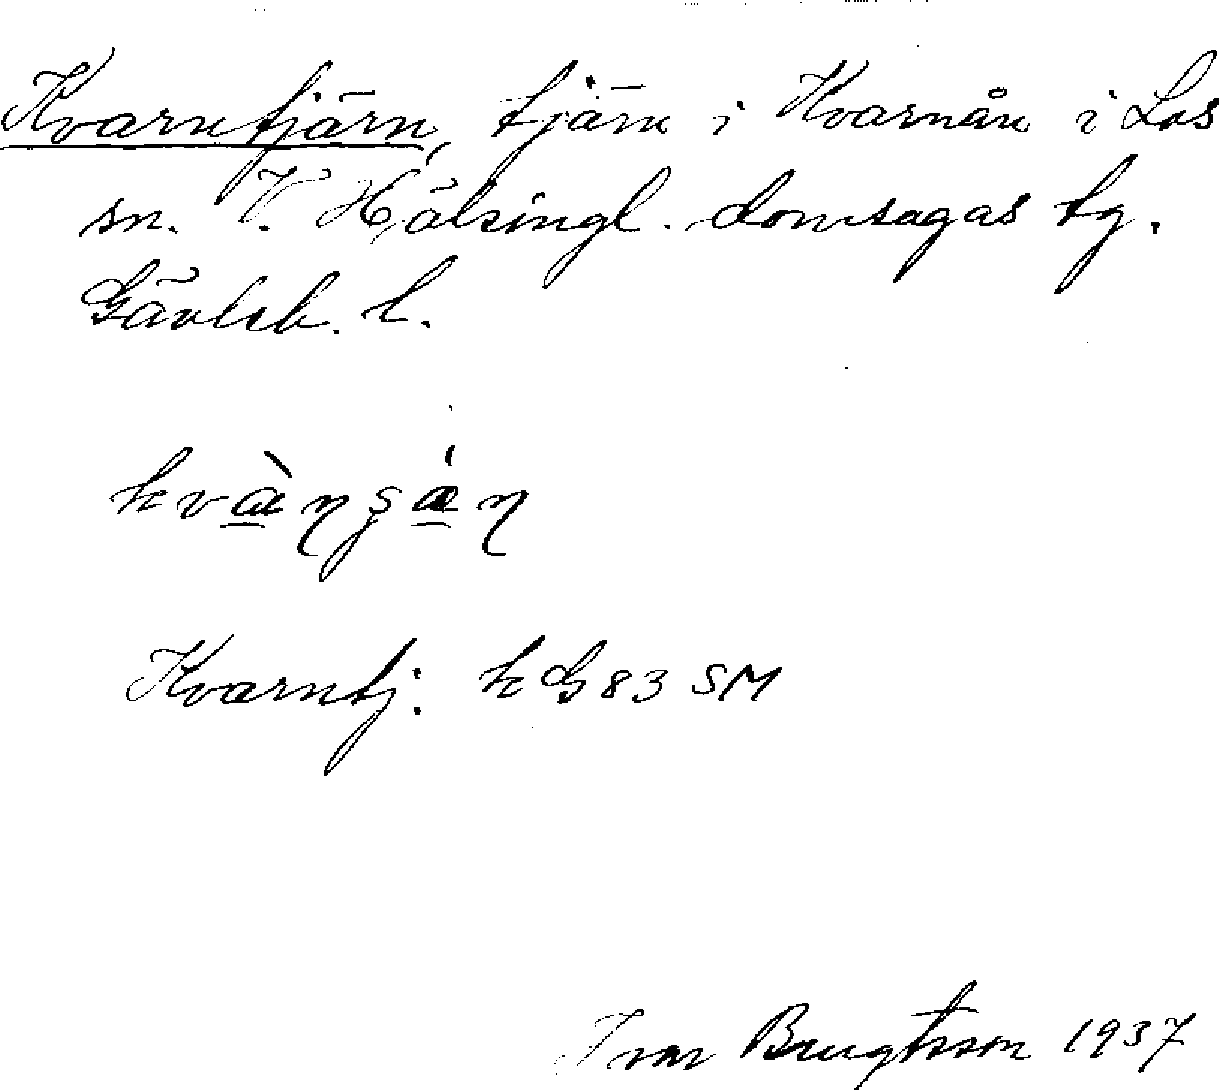 Kvarntjärn, tjärn i Kvarnån i Los
sn. V. Hälsingl. domsagas tg.
Gävleb. l.
kvæ̀ɳʂǽɳ
Kvarntj: kG 83 SM
Ivar Bengtsson 1937